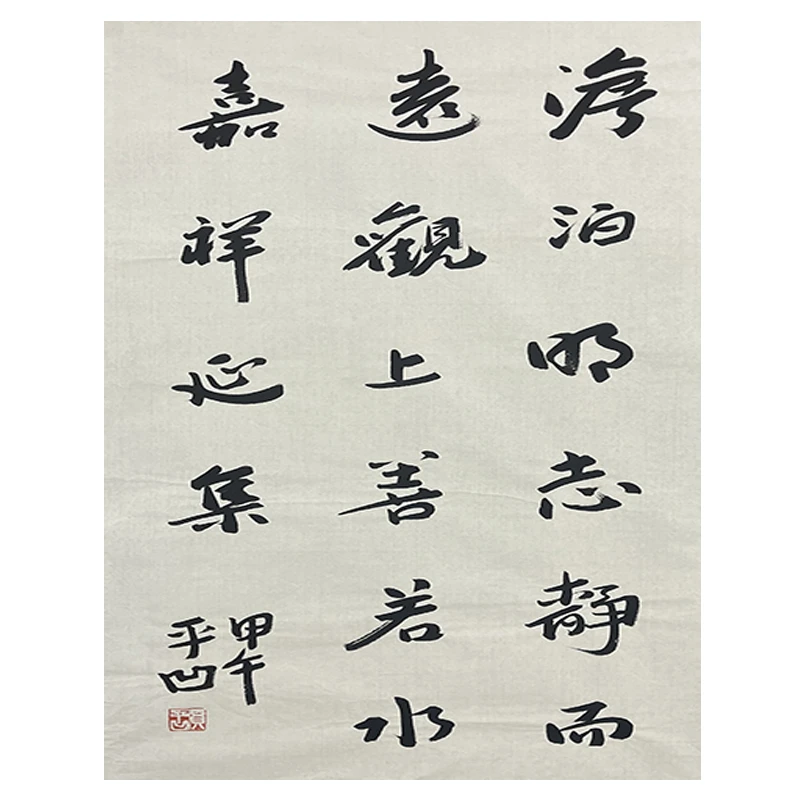 澹泊明志靜而
遠觀上善若水
嘉祥延集
甲午
平凹